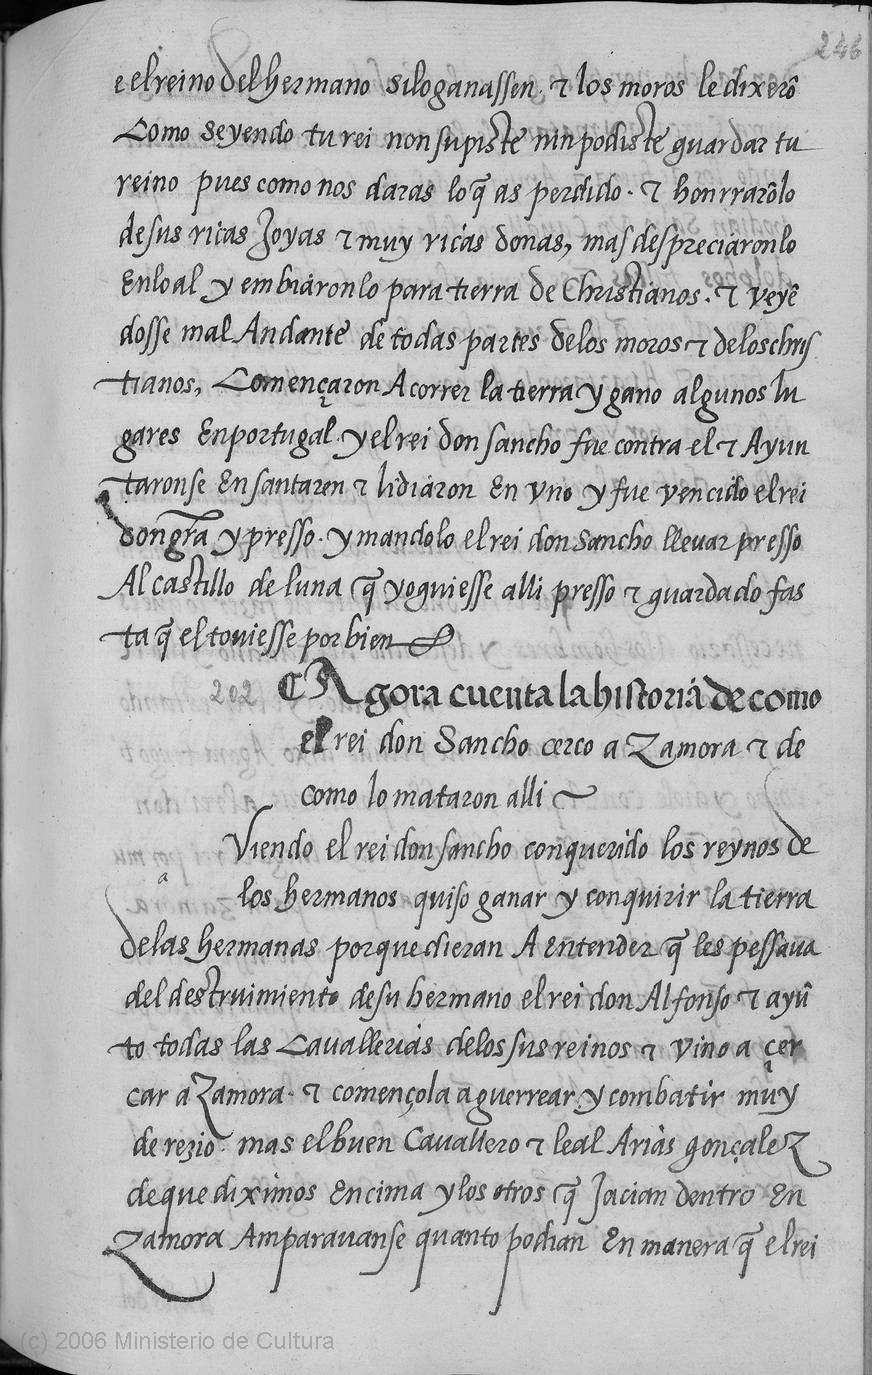 246
e el reino del hermano si lo ganassen. τ los moros le dixerõ
Como seyendo tu rei non supiste nin podiste guardar tu
reino pues como nos daras lo q̃ as perdido. τ honrrarõlo
de sus ricas Joyas τ muy ricas donas, mas despreciaronlo
En lo al y embiaronlo para tierra de Christianos. τ veyẽ
dosse mal Andante de todas partes de los moros τ de los chris
tianos, Començaron A correr la tierra y gano algunos lu
gares En portugal. y el rei don sancho fue contra el τ Ayun
taronse En santaren τ lidiaron En vno y fue vencido el rei
don gr̃a y presso. y mandolo el rei don Sancho llevar presso
Al castillo de luna q̃ yoguiesse alli presso τ guardado fas
ta q̃ el toviesse por bien
202 Agora cuenta la historia de como
el rei don Sancho cerco a Zamora τ de
como lo mataron alli
Viendo el rei don sancho conquerido los reynos de
a
los hermanos quiso ganar y conquirir la tierra
de las hermanas porque dieran A entender q̃ les pessaua
del destruimiento de su hermano el rei don Alfonso τ ayũ
to todas las Cavallerias de los sus reinos τ vino a çer
car a Zamora. τ començola a guerrear y combatir muy
de rezio. mas el buen Cavallero τ leal Arias gonçalez
de que diximos Encima y los otros q̃ Jacian dentro En
Zamora Amparauanse quanto podian En manera q̃ el rei
(c) 2006 Ministerio de Cultura